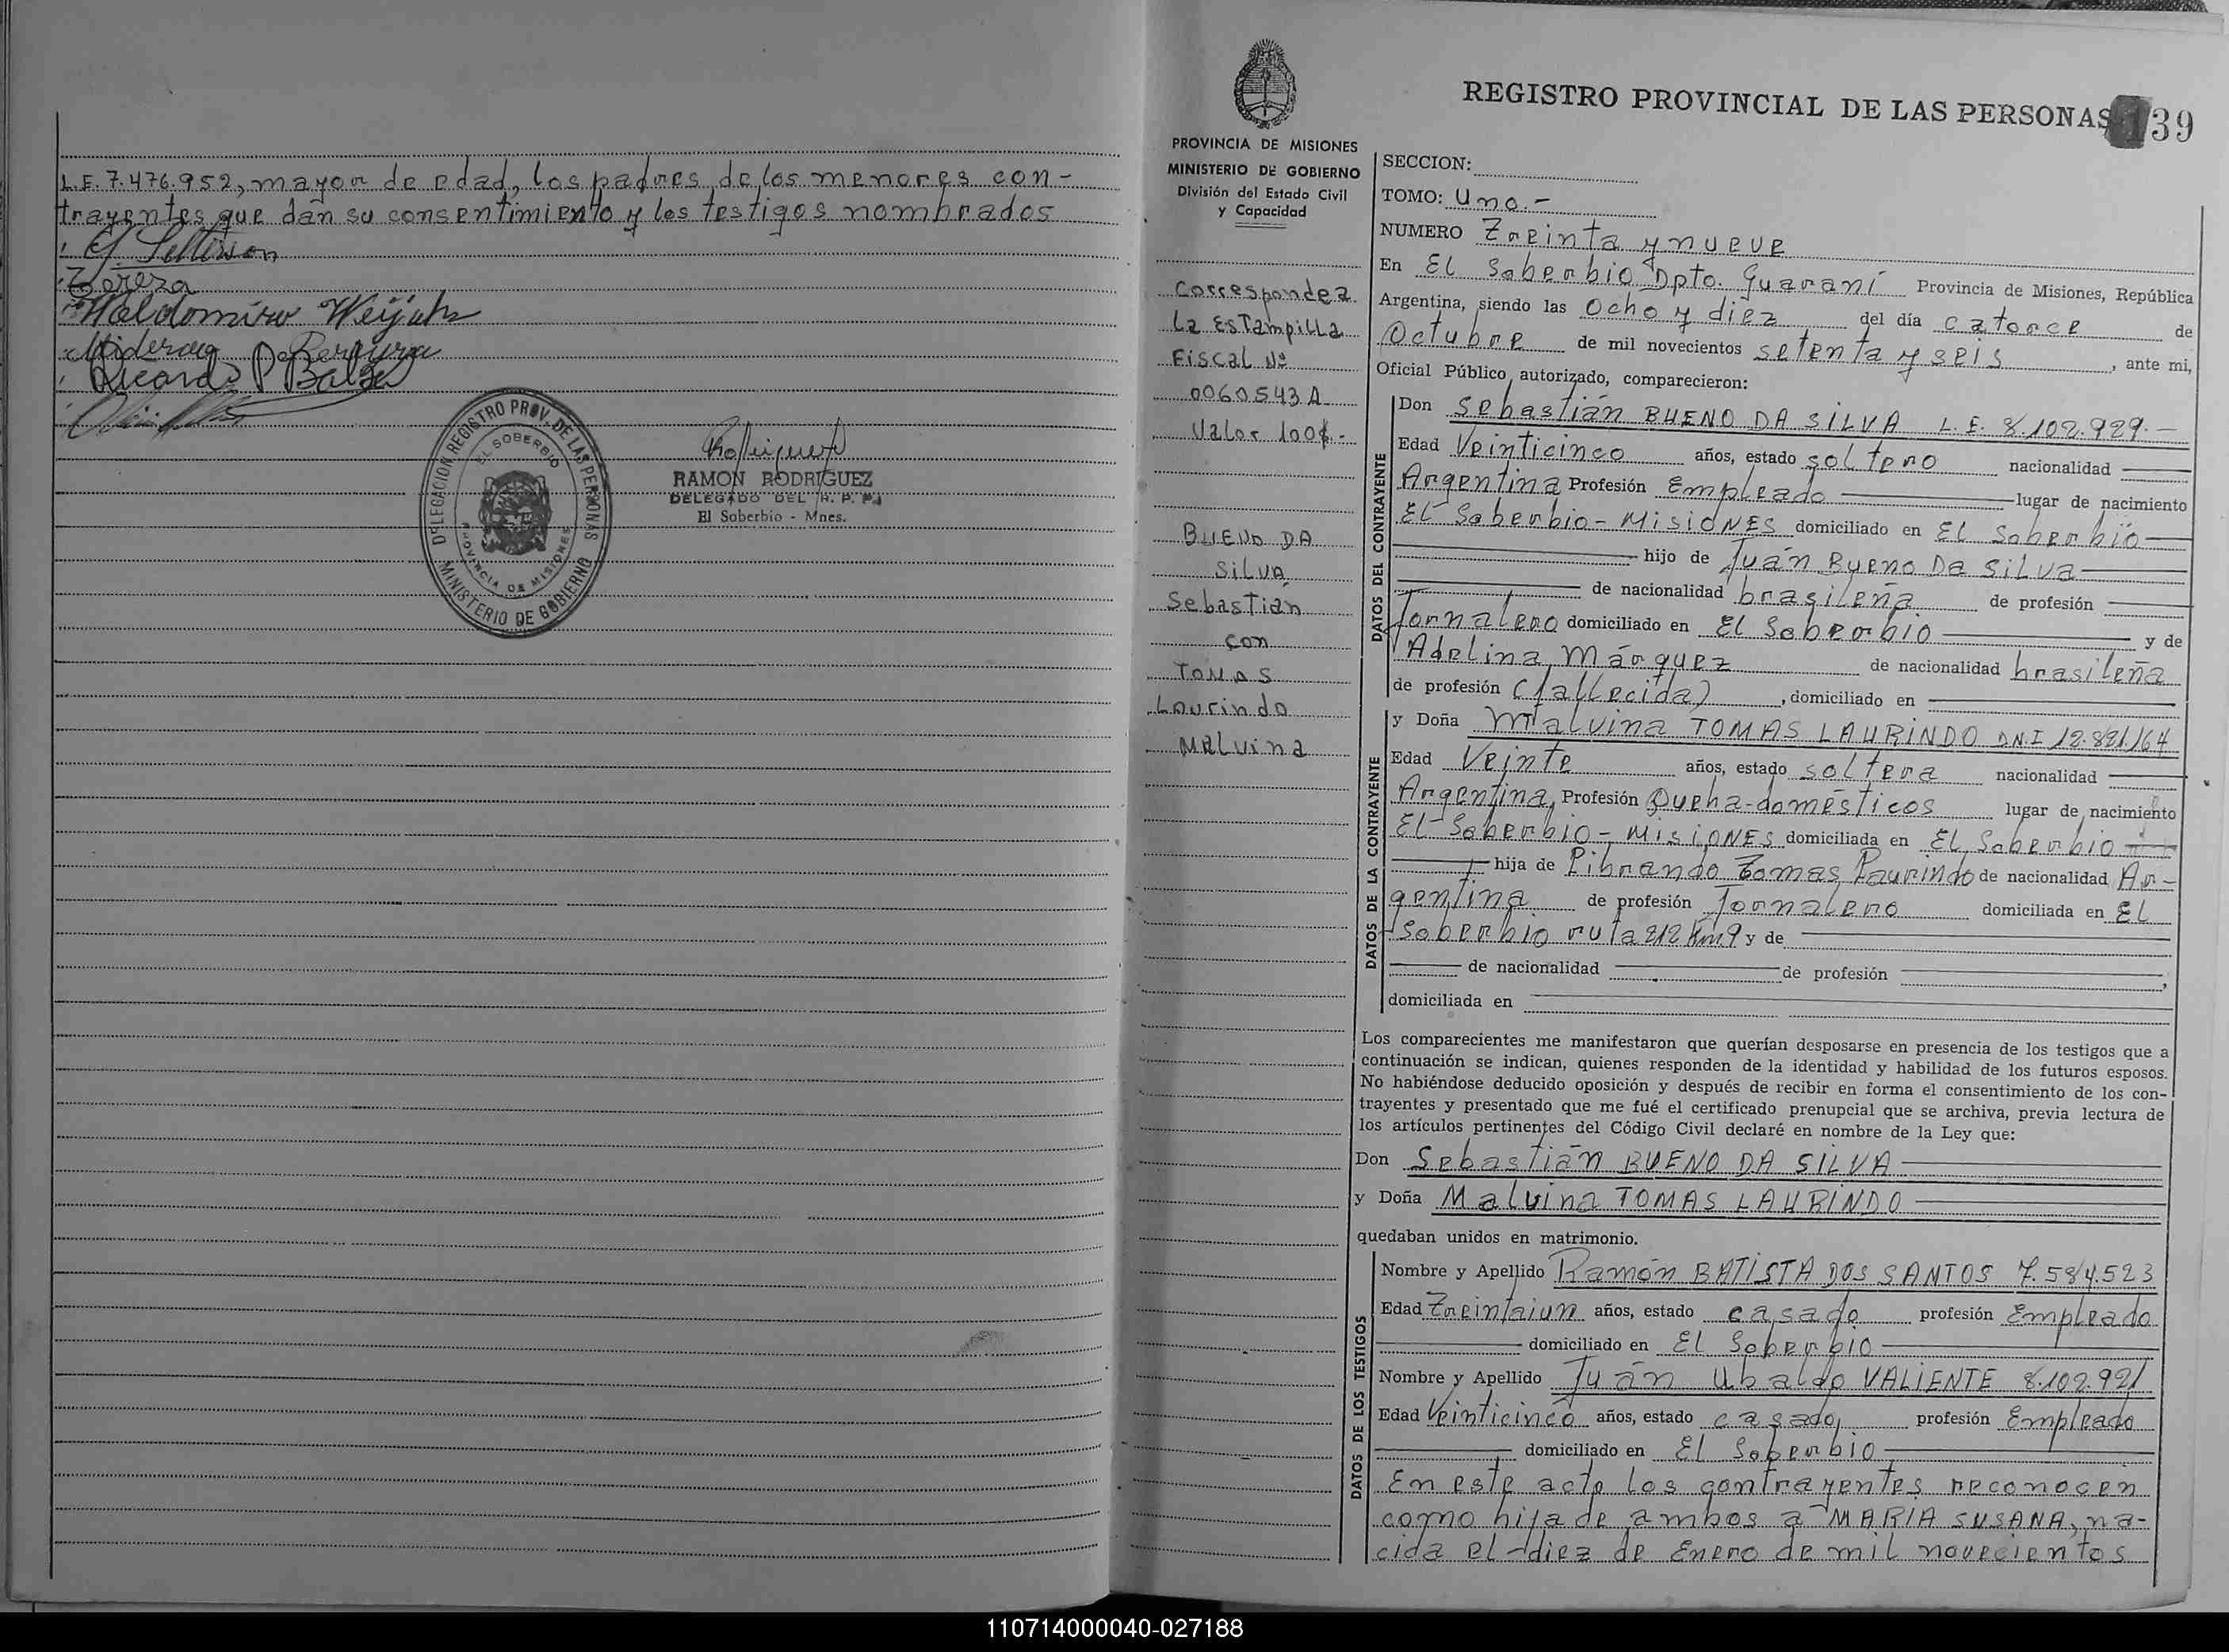 L.E. 7.476.952, mayor de edad, los padres de los menores con-
trayentes que dan su consentimiento y los testigos nombrados
Tereza
Waldomiro
Pereyra
Ricardo
DELEGACION REGISTRO PROV. DE LAS PERSONAS
EL SOBERBIO
PROVINCIA DE MISIONES
MINISTERIO DE GOBIERNO
RAMON RODRIGUEZ
DELEGADO DEL R. P. P.
El Soberbio - Mnes.
REGISTRO PROVINCIAL DE LAS PERSONAS 139
PROVINCIA DE MISIONES
MINISTERIO DE GOBIERNO
División del Estado Civil
y Capacidad
Corresponde a
la Estampilla
Fiscal Nº
0060543 A
Valor 100$.-
BUENO DA
SILVA
Sebastian
con
TOMAS
Laurindo
Malvina
SECCION:
TOMO: Uno.-
NUMERO Treinta y nueve
En El Soberbio Dpto. Guaraní Provincia de Misiones, República
Argentina, siendo las Ocho y diez del día catorce de
Octubre de mil novecientos setenta y seis, ante mi,
Oficial Público autorizado, comparecieron:
DATOS DEL CONTRAYENTE
Don Sebastián BUENO DA SILVA L.E. 8.102.929.-
Edad Veinticinco años, estado soltero nacionalidad
Argentina Profesión Empleado lugar de nacimiento
El Soberbio - MISIONES domiciliado en El Soberbio
hijo de Juán Bueno Da Silva
de nacionalidad brasileña de profesión
Jornalero domiciliado en El Soberbio y de
Adelina Márquez de nacionalidad brasileña
de profesión (fallecida), domiciliado en
DATOS DE LA CONTRAYENTE
y Doña Malvina TOMAS LAURINDO D.N.I 12.821.164
Edad Veinte años, estado soltera nacionalidad
Argentina, Profesión Queha-domésticos lugar de nacimiento
El Soberbio - MISIONES domiciliada en El Soberbio
hija de Librando Tomas Laurindo de nacionalidad Ar-
gentina de profesión Jornalero domiciliada en El
Soberbio ruta 212 Km 9 y de
de nacionalidad de profesión ,
domiciliada en
Los comparecientes me manifestaron que querían desposarse en presencia de los testigos que a
continuación se indican, quienes responden de la identidad y habilidad de los futuros esposos.
No habiéndose deducido oposición y después de recibir en forma el consentimiento de los con-
trayentes y presentado que me fué el certificado prenupcial que se archiva, previa lectura de
los artículos pertinentes del Código Civil declaré en nombre de la Ley que:
Don Sebastián BUENO DA SILVA
y Doña Malvina TOMAS LAURINDO
quedaban unidos en matrimonio.
DATOS DE LOS TESTIGOS
Nombre y Apellido Ramón BATISTA DOS SANTOS 7.584.523
Edad Treintaiun años, estado casado profesión Empleado
domiciliado en El Soberbio
Nombre y Apellido Juán Ubaldo VALIENTE 8.102.921
Edad Veinticinco años, estado casado, profesión Empleado
domiciliado en El Soberbio
En este acto los contrayentes reconocen
como hija de ambos a MARIA SUSANA, na-
cida el diez de Enero de mil novecientos
110714000040-027188